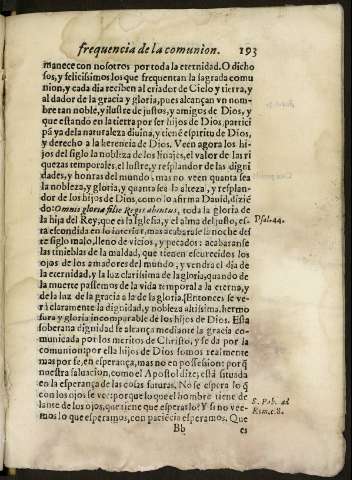 frequencia de la comunion. 193
manece con nosotros por toda la eternidad. O dicho
sos, y felicissimos los que frequentan la sagrada comu
nion, y cada dia reciben al criador de Cielo y tierra, y
al dador de la gracia y gloria, pues alcançan vn nom-
bre tan noble, y ilustre de justos, y amigos de Dios, y
que estando en la tierra por ser hijos de Dios, partici
pã ya de la naturaleza diuina, y tiené espiritu de Dios,
y derecho a la herencia de Dios. Veen agora los hi-
jos del siglo la nobleza de los linajes, el valor de las ri
quezas temporales, el lustre, y resplandor de las digni
dades, y honras del mundo: mas no veen quanta sea
la nobleza, y gloria, y quanta sea la alteza, y resplan-
dor de los hijos de Dios, como lo afirma Dauid, diziẽ
do: Omnis gloria filie Regis abintus, toda la gloria de
la hija del Rey, que es la Iglesia, y el alma del justo, es-
Psal. 44.
ta escondida en lo interior, mas acabarase la noche des
te siglo malo, lleno de vicios, y pecados: acabaranse
las tinieblas de la maldad, que tienen escurecidos los
ojos de los amadores del mundo, y vendra el dia de
la eternidad, y la luz clarissima de la gloria, quando de
la muerte passemos de la vida temporal a la eterna, y
de la luz de la gracia a la de la gloria. Entonces se ve-
rà claramente la dignidad, y nobleza altissima, hermo
sura y gloria incomparable de los hijos de Dios. Esta
soberana dignidad se alcança mediante la gracia co-
municada por los meritos de Christo, y se da por la
comunion: por ella hijos de Dios somos realmente
mas por fe, en esperança, mas no en possession: porq̃
nuestra saluacion, como el Apostol dize, está situada
en la esperança de las cosas futuras. No se espera lo q̃
con los ojos se vee: porque lo que el hombre tiene de
lante de los ojos, que tiene que esperarlo? Y si no vee-
S. Pab. ad
mos lo que esperamos, con paciẽcia esperamos. Que
Rom. c. 8.
Bb es